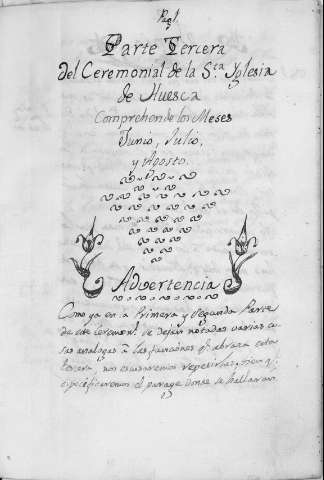 Pag. 1.
Parte Tercera
del Ceremonial de la S.ta Yglesia
de Huesca
Comprehende los Meses
Junio, Julio,
y Agosto.
Advertencia
Como ya en la Primera y Segunda Parte
de este Ceremon.l se dejan notadas varias co-
sas analogas a las funciones q.e abraza esta
tercera, nos escusaremos repetirlas, 
especificaremos el parage donde se hallaran